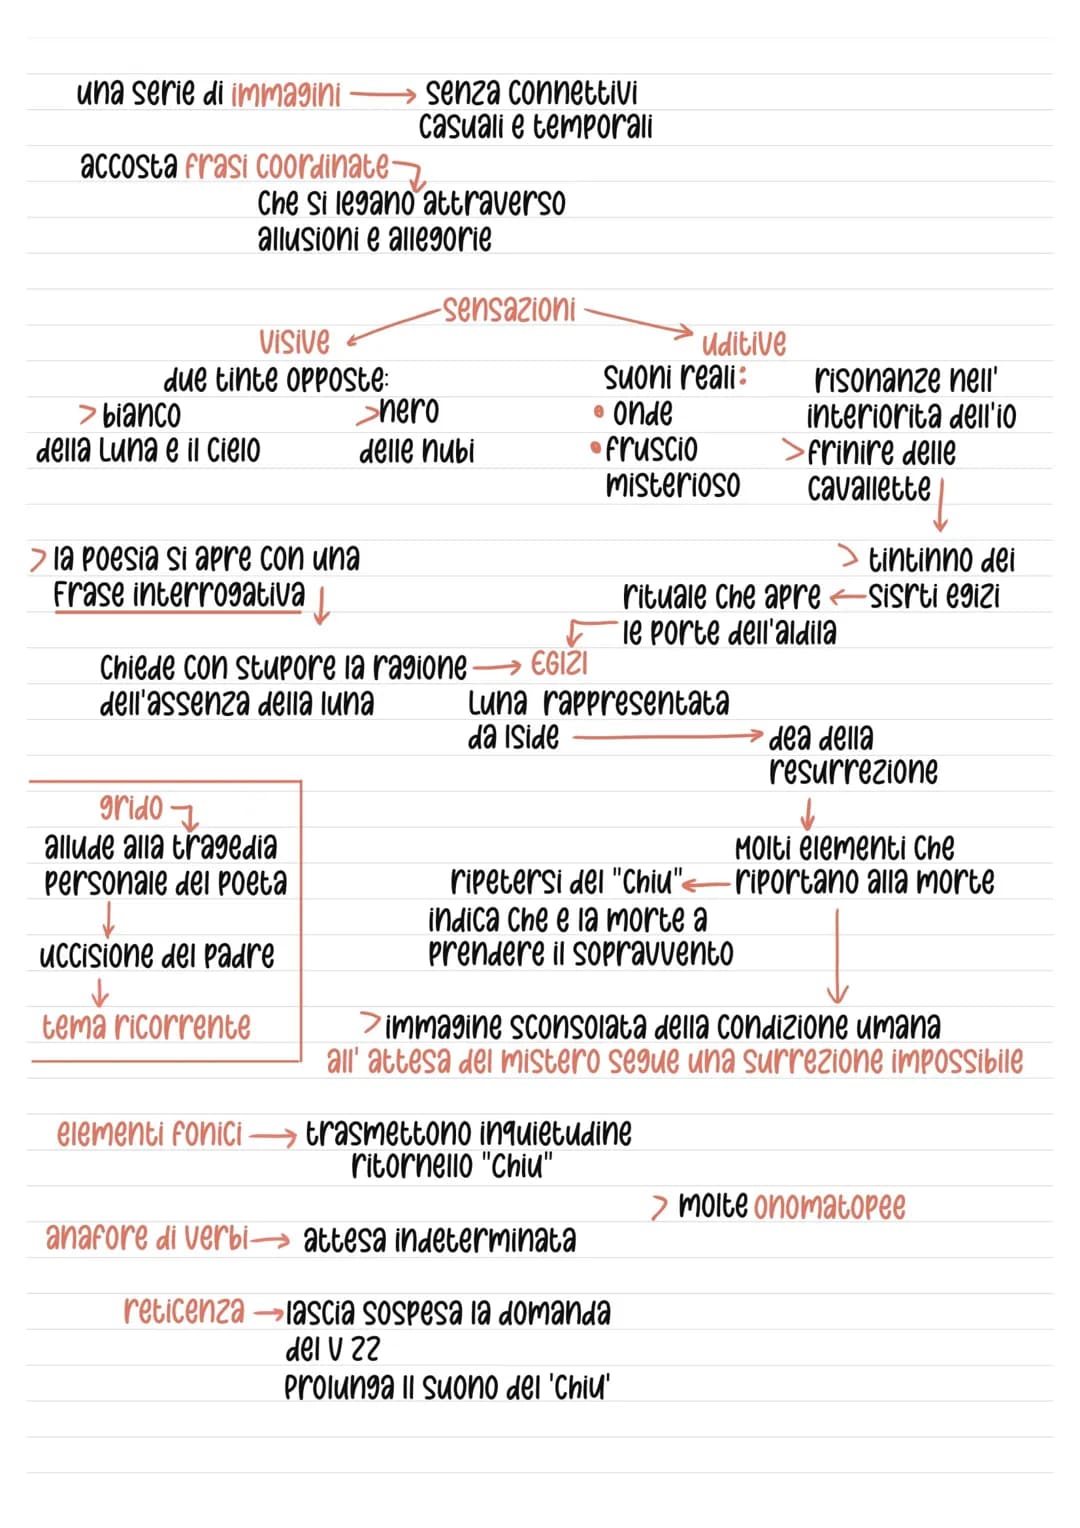 una serie di immagini → senza connettivi
casuali e temporali
accosta frasi coordinate
che si legano attraverso
allusioni e allegorie
sensazioni
visive
due tinte opposte:
> bianco
della Luna e il cielo
> nero
delle nubi
uditive
suoni reali:
• onde
• fruscio
misterioso
risonanze nell'
interiorita dell'io
> frinire delle
cavallette
> tintinno dei
sisrti egizi
rituale che apre
le porte dell'aldila
> la poesia si apre con una
Frase interrogativa
chiede con stupore la ragione → EGIZI
dell'assenza della luna
Luna rappresentata
da Iside → dea della
resurrezione
Molti elementi che
riportano alla morte
ripetersi del "chiu"
indica che e la morte a
prendere il sopravvento
grido
allude alla tragedia
personale del poeta
uccisione del padre
tema ricorrente
> immagine sconsolata della condizione umana
all' attesa del mistero segue una surrezione impossibile
elementi fonici → trasmettono inquietudine
ritornello "chiu"
> molte onomatopee
anafore di verbi → attesa indeterminata
reticenza → lascia sospesa la domanda
del v 22
Prolunga il suono del 'chiu'